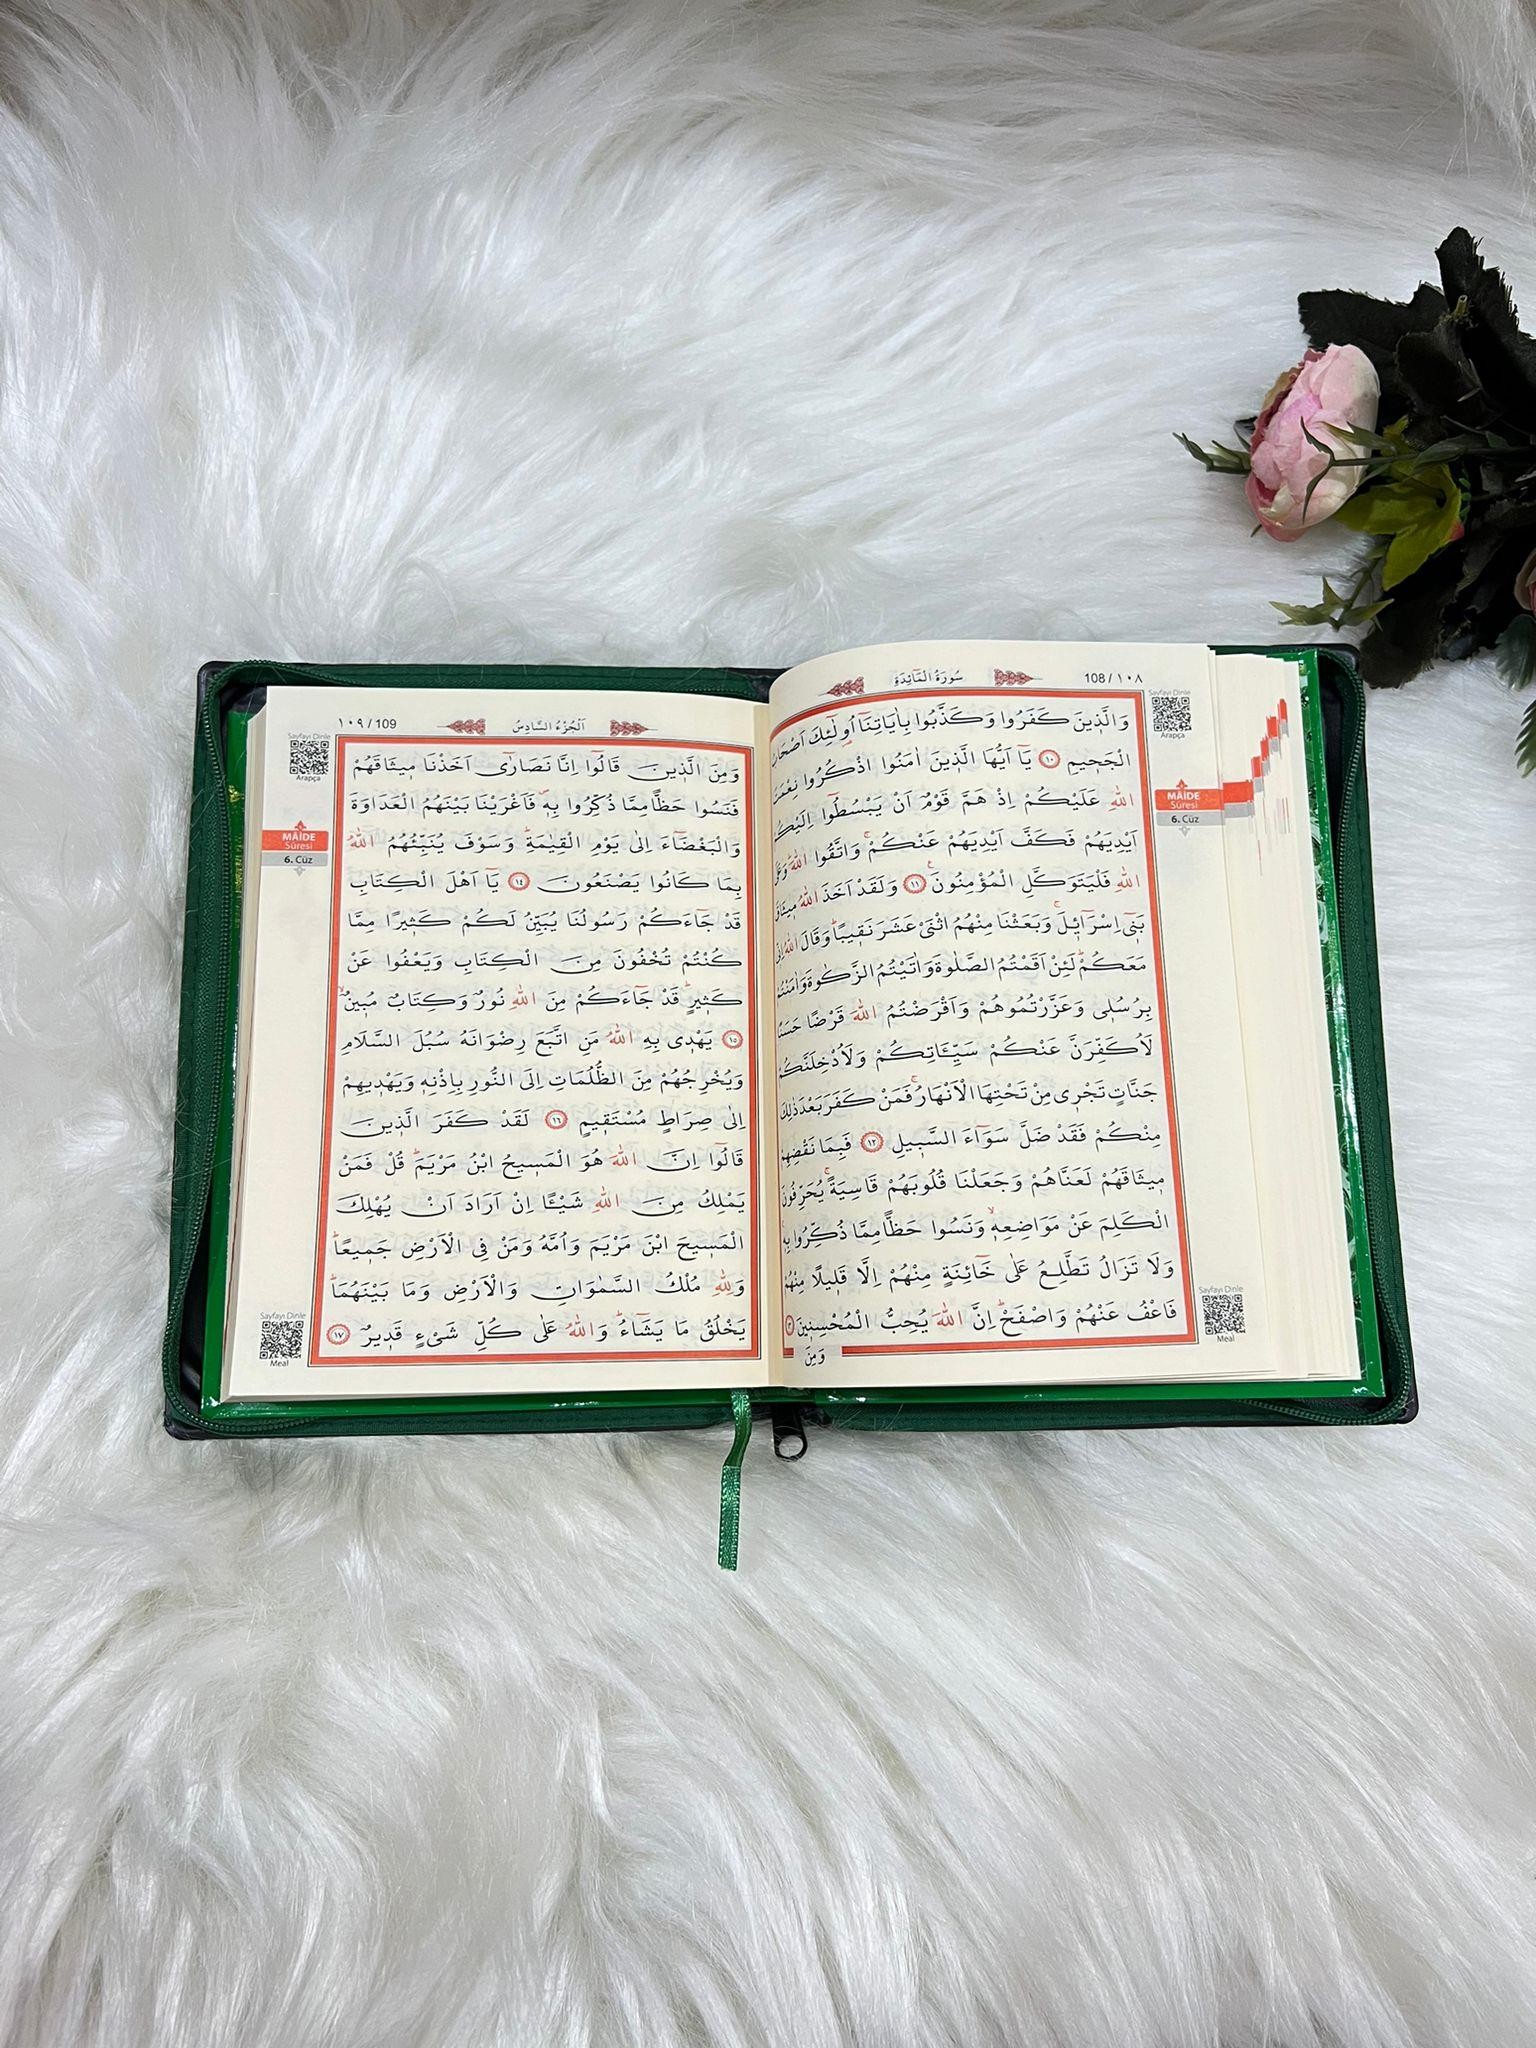 108/١٠٨
سُورَةُ الْمَائِدَةِ
Sayfayı Dinle
Arapça
MÂİDE
Sûresi
6. Cüz
وَالَّذٖينَ كَفَرُوا وَكَذَّبُوا بِاٰيَاتِنَٓا اُو۬لٰٓئِكَ اَصْحَابُ
الْجَحٖيمِ ١٠ يَٓا اَيُّهَا الَّذٖينَ اٰمَنُوا اذْكُرُوا نِعْمَتَ
اللّٰهِ عَلَيْكُمْ اِذْ هَمَّ قَوْمٌ اَنْ يَبْسُطُٓوا اِلَيْكُمْ
اَيْدِيَهُمْ فَكَفَّ اَيْدِيَهُمْ عَنْكُمْۚ وَاتَّقُوا اللّٰهَۜ وَعَلَى
اللّٰهِ فَلْيَتَوَكَّلِ الْمُؤْمِنُونَ۟ ١١ وَلَقَدْ اَخَذَ اللّٰهُ مٖيثَاقَ
بَنٖٓي اِسْرَٓائٖلَۚ وَبَعَثْنَا مِنْهُمُ اثْنَيْ عَشَرَ نَقٖيباًۜ وَقَالَ اللّٰهُ اِنّٖي
مَعَكُمْۜ لَئِنْ اَقَمْتُمُ الصَّلٰوةَ وَاٰتَيْتُمُ الزَّكٰوةَ وَاٰمَنْتُمْ
بِرُسُلٖي وَعَزَّرْتُمُوهُمْ وَاَقْرَضْتُمُ اللّٰهَ قَرْضًا حَسَنًا
لَاُكَفِّرَنَّ عَنْكُمْ سَيِّـَٔاتِكُمْ وَلَاُدْخِلَنَّكُمْ
جَنَّاتٍ تَجْرٖي مِنْ تَحْتِهَا الْاَنْهَارُۚ فَمَنْ كَفَرَ بَعْدَ ذٰلِكَ
مِنْكُمْ فَقَدْ ضَلَّ سَوَٓاءَ السَّبٖيلِ ١٢ فَبِمَا نَقْضِهِمْ
مٖيثَاقَهُمْ لَعَنَّاهُمْ وَجَعَلْنَا قُلُوبَهُمْ قَاسِيَةًۚ يُحَرِّفُونَ
الْكَلِمَ عَنْ مَوَاضِعِهٖۙ وَنَسُوا حَظًّا مِمَّا ذُكِّرُوا بِهٖۚ
وَلَا تَزَالُ تَطَّلِعُ عَلٰى خَٓائِنَةٍ مِنْهُمْ اِلَّا قَلٖيلًا مِنْهُمْ
فَاعْفُ عَنْهُمْ وَاصْفَحْۜ اِنَّ اللّٰهَ يُحِبُّ الْمُحْسِنٖينَ ١٣
وَمِنَ
Sayfayı Dinle
Meal
١٠٩/109
اَلْجُزْءُ السَّادِسُ
Sayfayı Dinle
Arapça
MÂİDE
Sûresi
6. Cüz
وَمِنَ الَّذٖينَ قَالُٓوا اِنَّا نَصَارٰٓى اَخَذْنَا مٖيثَاقَهُمْ
فَنَسُوا حَظًّا مِمَّا ذُكِّرُوا بِهٖۖ فَاَغْرَيْنَا بَيْنَهُمُ الْعَدَاوَةَ
وَالْبَغْضَٓاءَ اِلٰى يَوْمِ الْقِيٰمَةِۜ وَسَوْفَ يُنَبِّئُهُمُ اللّٰهُ
بِمَا كَانُوا يَصْنَعُونَ ١٤ يَٓا اَهْلَ الْكِتَابِ
قَدْ جَٓاءَكُمْ رَسُولُنَا يُبَيِّنُ لَكُمْ كَثٖيرًا مِمَّا
كُنْتُمْ تُخْفُونَ مِنَ الْكِتَابِ وَيَعْفُوا عَنْ
كَثٖيرٍۜ قَدْ جَٓاءَكُمْ مِنَ اللّٰهِ نُورٌ وَكِتَابٌ مُبٖينٌۙ
١٥ يَهْدٖي بِهِ اللّٰهُ مَنِ اتَّبَعَ رِضْوَانَهُ سُبُلَ السَّلَامِ
وَيُخْرِجُهُمْ مِنَ الظُّلُمَاتِ اِلَى النُّورِ بِاِذْنِهٖ وَيَهْدٖيهِمْ
اِلٰى صِرَاطٍ مُسْتَقٖيمٍ ١٦ لَقَدْ كَفَرَ الَّذٖينَ
قَالُٓوا اِنَّ اللّٰهَ هُوَ الْمَسٖيحُ ابْنُ مَرْيَمَۜ قُلْ فَمَنْ
يَمْلِكُ مِنَ اللّٰهِ شَيْـًٔا اِنْ اَرَادَ اَنْ يُهْلِكَ
الْمَسٖيحَ ابْنَ مَرْيَمَ وَاُمَّهُ وَمَنْ فِي الْاَرْضِ جَمٖيعًاۜ
وَلِلّٰهِ مُلْكُ السَّمٰوَاتِ وَالْاَرْضِ وَمَا بَيْنَهُمَاۜ
يَخْلُقُ مَا يَشَٓاءُۜ وَاللّٰهُ عَلٰى كُلِّ شَيْءٍ قَدٖيرٌ ١٧
Sayfayı Dinle
Meal